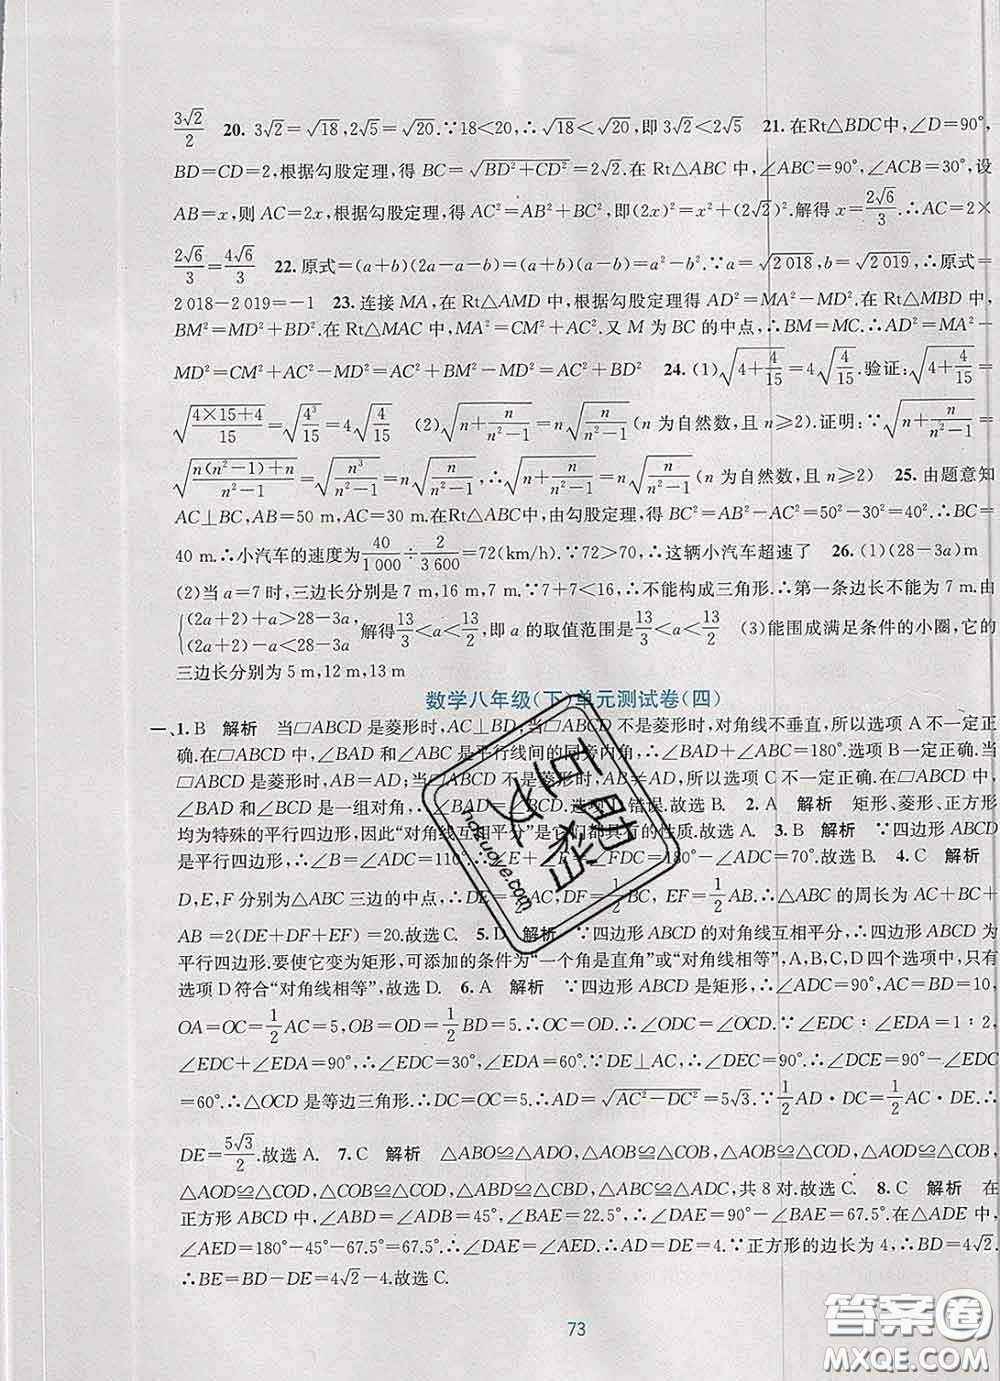 3√2/2 20. 3√2=√18,2√5=√20.∵18<20,∴√18<√20,即 3√2<2√5 21. 在Rt△BDC中,∠D=90°,
BD=CD=2,根据勾股定理,得 BC=√(BD²+CD²)=2√2.在 Rt△ABC 中,∠ABC=90°,∠ACB=30°,设
AB=x,则 AC=2x,根据勾股定理,得 AC²=AB²+BC²,即(2x)²=x²+(2√2)².解得 x=2√6/3.∴AC=2×
2√6/3=4√6/3 22. 原式=(a+b)(2a-a-b)=(a+b)(a-b)=a²-b².∵a=√2 018,b=√2 019,∴原式=
2 018-2 019=-1 23. 连接 MA,在 Rt△AMD 中,根据勾股定理得 AD²=MA²-MD².在 Rt△MBD 中,
BM²=MD²+BD².在 Rt△MAC 中,MA²=CM²+AC².又 M 为 BC 的中点,∴BM=MC.∴AD²=MA²-
MD²=CM²+AC²-MD²=AC²+BM²-MD²=AC²+BD² 24. (1)√(4+4/15)=4√(4/15).验证:√(4+4/15)=
√((4×15+4)/15)=√(4³/15)=4√(4/15) (2)√(n+n/(n²-1))=n√(n/(n²-1))(n 为自然数,且 n≥2).证明:∵√(n+n/(n²-1))=
√((n(n²-1)+n)/(n²-1))=√(n³/(n²-1))=n√(n/(n²-1)),∴√(n+n/(n²-1))=n√(n/(n²-1))(n 为自然数,且 n≥2) 25. 由题意知
AC⊥BC,AB=50 m,AC=30 m.在Rt△ABC中,由勾股定理,得 BC²=AB²-AC²=50²-30²=40².∴BC=
40 m.∴小汽车的速度为 40/1 000÷2/3 600=72(km/h).∵72>70,∴这辆小汽车超速了 26. (1)(28-3a)m
(2)当 a=7 时,三边长分别是 7 m,16 m,7 m.∵7+7<16,∴不能构成三角形.∴第一条边长不能为 7 m.由
{(2a+2)+a>28-3a, (2a+2)-a<28-3a 解得13/3<a<13/2,即 a 的取值范围是13/3<a<13/2 (3)能围成满足条件的小圈,它的
三边长分别为 5 m,12 m,13 m
数学八年级(下)单元测试卷(四)
一、1. B 解析 当□ABCD 是菱形时,AC⊥BD;当□ABCD 不是菱形时,对角线不垂直,所以选项 A 不一定正
确.在□ABCD 中,∠BAD 和∠ABC 是平行线间的同旁内角,∴∠BAD+∠ABC=180°.选项 B 一定正确.当
□ABCD 是菱形时,AB=AD;当□ABCD 不是菱形时,AB≠AD,所以选项 C 不一定正确.在□ABCD 中,
∠BAD 和∠BCD 是一组对角,∴∠BAD=∠BCD.选项 D 错误.故选 B. 2. A 解析 矩形、菱形、正方形
均为特殊的平行四边形,因此“对角线互相平分”是它们都具有的性质.故选 A. 3. B 解析 ∵四边形 ABCD
是平行四边形,∴∠ABC=∠ADC=110°.∴∠E+∠F=∠FDC=180°-∠ADC=70°.故选 B. 4. C 解析 ∵
D,E,F 分别为△ABC 三边的中点,∴DE=1/2AC,DF=1/2BC,EF=1/2AB.∴△ABC 的周长为 AC+BC+
AB=2(DE+DF+EF)=20.故选 C. 5. D 解析 ∵四边形 ABCD 的对角线互相平分,∴四边形 ABCD 为
平行四边形.要使它变为矩形,可添加的条件为“一个角是直角”或“对角线相等”,A,B,C,D四个选项中,只有
选项 D符合“对角线相等”,故选 D. 6. A 解析 ∵四边形 ABCD 是矩形,∴∠ADC=90°,AC=BD=10,
OA=OC=1/2AC=5,OB=OD=1/2BD=5.∴OC=OD.∴∠ODC=∠OCD.∵∠EDC∶∠EDA=1∶2,
∠EDC+∠EDA=90°,∴∠EDC=30°,∠EDA=60°.∵DE⊥AC,∴∠DEC=90°.∴∠DCE=90°-∠EDC
=60°.∴△OCD 是等边三角形.∴DC=OC=5.∴AD=√(AC²-DC²)=5√3.∵1/2AD·DC=1/2AC·DE,∴
DE=5√3/2.故选 A. 7. C 解析 △ABO≌△ADO,△AOB≌△COB,△AOB≌△COD,△AOD≌△COB,
△AOD≌△COD,△COB≌△COD,△ABD≌△CBD,△ABC≌△ADC,共 8 对.故选 C. 8. C 解析 在
正方形 ABCD 中,∠ABD=∠ADB=45°,∠BAE=22.5°,∴∠DAE=90°-∠BAE=67.5°.在△ADE 中,
∠AED=180°-45°-67.5°=67.5°.∴∠DAE=∠AED.∴AD=DE=4.∵正方形的边长为 4,∴BD=4√2.
∴BE=BD-DE=4√2-4.故选 C.
73
答案圈
MXQE.COM